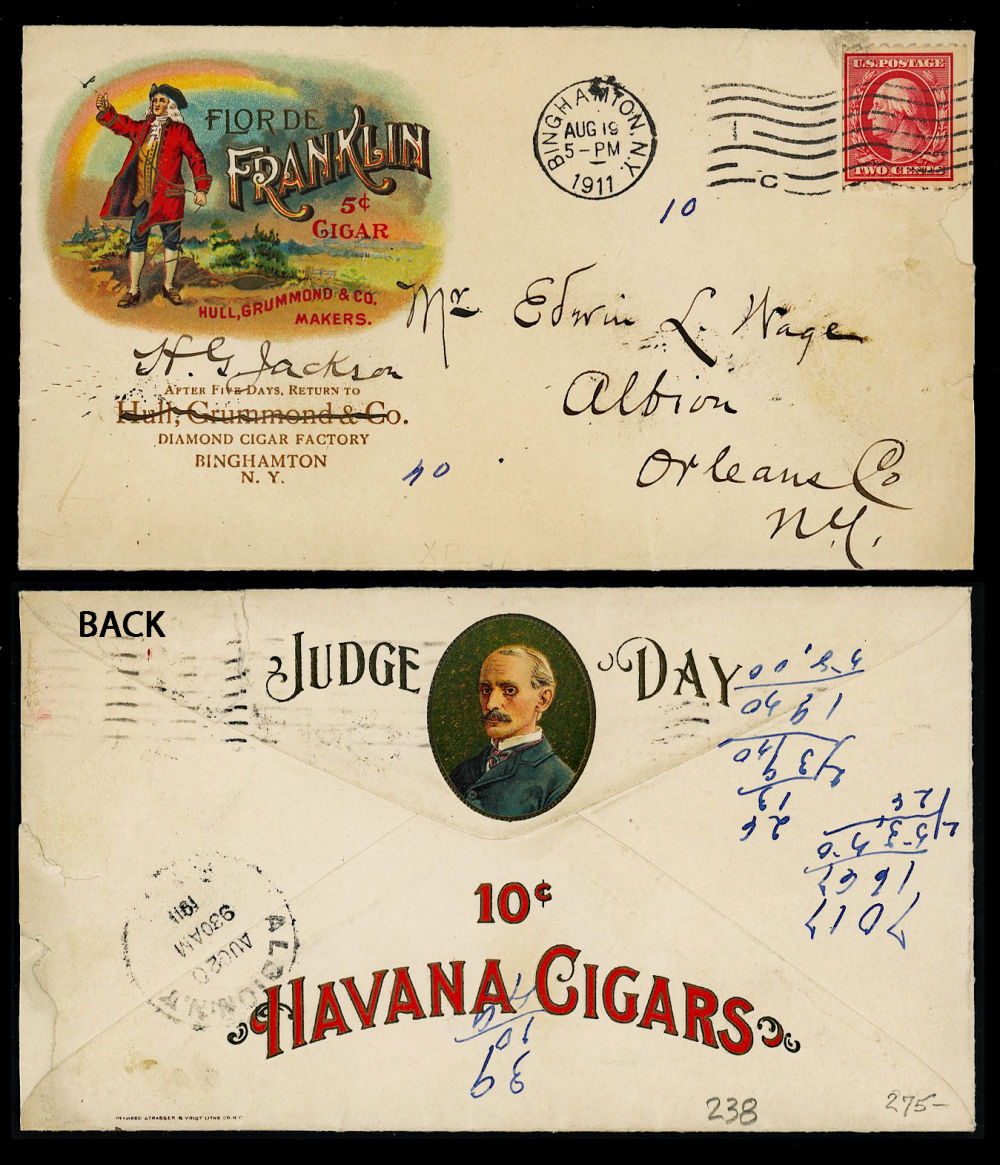 FLOR DE
FRANKLIN
5¢
CIGAR
HULL, GRUMMOND & CO.
MAKERS.
H. G. Jackson
AFTER FIVE DAYS, RETURN TO
Hull, Grummond & Co.
DIAMOND CIGAR FACTORY
BINGHAMTON
N. Y.
BINGHAMTON, N.Y.
AUG 19
5-PM
1911
C
U.S. POSTAGE
TWO CENTS
10
Mr Edwin L. Wage
Albion
Orleans Co
N.Y.
40
BACK
JUDGE DAY
10¢
HAVANA CIGARS
ALBION, N.Y.
AUG 20
930AM
1911
39
10
7017
238
275-